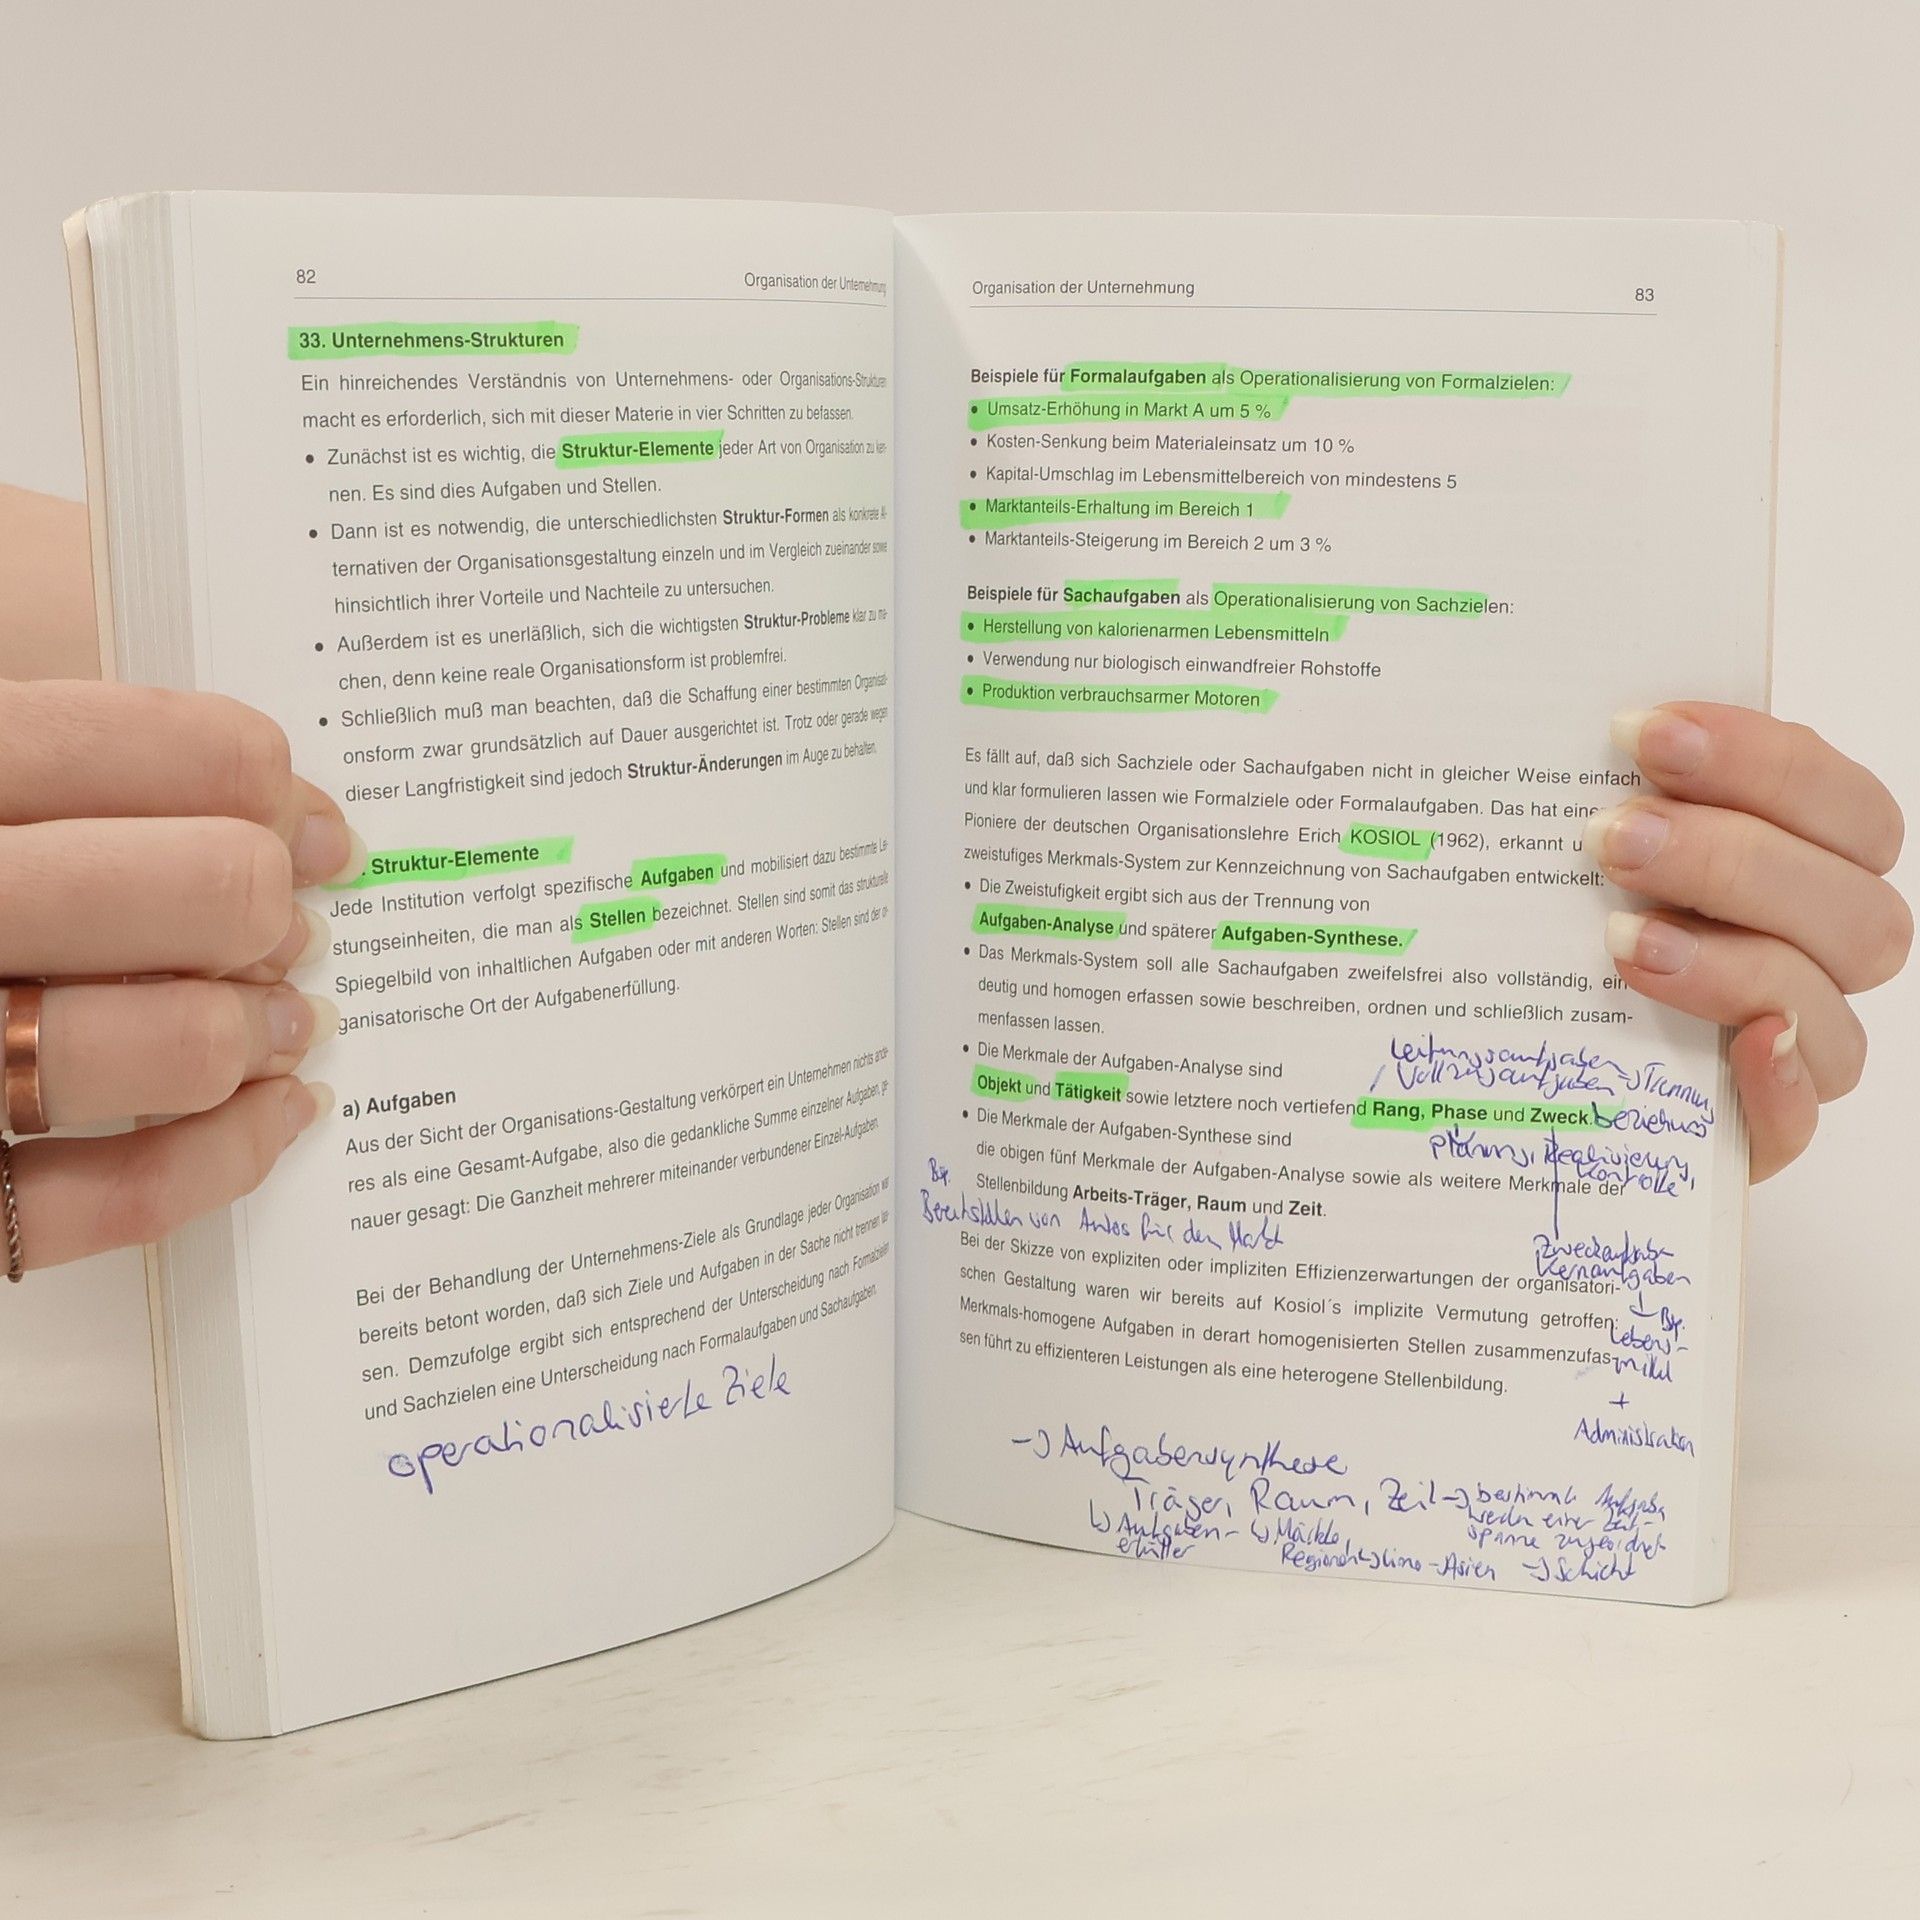 82
Organisation der Unternehmung
33. Unternehmens-Strukturen
Ein hinreichendes Verständnis von Unternehmens- oder Organisations-Strukturen
macht es erforderlich, sich mit dieser Materie in vier Schritten zu befassen.
• Zunächst ist es wichtig, die Struktur-Elemente jeder Art von Organisation zu ken-
nen. Es sind dies Aufgaben und Stellen.
• Dann ist es notwendig, die unterschiedlichsten Struktur-Formen als konkrete Al-
ternativen der Organisationsgestaltung einzeln und im Vergleich zueinander sowie
hinsichtlich ihrer Vorteile und Nachteile zu untersuchen.
• Außerdem ist es unerläßlich, sich die wichtigsten Struktur-Probleme klar zu ma-
chen, denn keine reale Organisationsform ist problemfrei.
• Schließlich muß man beachten, daß die Schaffung einer bestimmten Organisati-
onsform zwar grundsätzlich auf Dauer ausgerichtet ist. Trotz oder gerade wegen
dieser Langfristigkeit sind jedoch Struktur-Änderungen im Auge zu behalten.
. Struktur-Elemente
Jede Institution verfolgt spezifische Aufgaben und mobilisiert dazu bestimmte Lei-
stungseinheiten, die man als Stellen bezeichnet. Stellen sind somit das strukturelle
Spiegelbild von inhaltlichen Aufgaben oder mit anderen Worten: Stellen sind der or-
ganisatorische Ort der Aufgabenerfüllung.
a) Aufgaben
Aus der Sicht der Organisations-Gestaltung verkörpert ein Unternehmen nichts ande-
res als eine Gesamt-Aufgabe, also die gedankliche Summe einzelner Aufgaben, ge-
nauer gesagt: Die Ganzheit mehrerer miteinander verbundener Einzel-Aufgaben.
Bei der Behandlung der Unternehmens-Ziele als Grundlage jeder Organisation war
bereits betont worden, daß sich Ziele und Aufgaben in der Sache nicht trennen las-
sen. Demzufolge ergibt sich entsprechend der Unterscheidung nach Formalzielen
und Sachzielen eine Unterscheidung nach Formalaufgaben und Sachaufgaben.
operationalisierte Ziele
Organisation der Unternehmung
83
Beispiele für Formalaufgaben als Operationalisierung von Formalzielen:
• Umsatz-Erhöhung in Markt A um 5 %
• Kosten-Senkung beim Materialeinsatz um 10 %
• Kapital-Umschlag im Lebensmittelbereich von mindestens 5
• Marktanteils-Erhaltung im Bereich 1
• Marktanteils-Steigerung im Bereich 2 um 3 %
Beispiele für Sachaufgaben als Operationalisierung von Sachzielen:
• Herstellung von kalorienarmen Lebensmitteln
• Verwendung nur biologisch einwandfreier Rohstoffe
• Produktion verbrauchsarmer Motoren
Es fällt auf, daß sich Sachziele oder Sachaufgaben nicht in gleicher Weise einfach
und klar formulieren lassen wie Formalziele oder Formalaufgaben. Das hat eine
Pioniere der deutschen Organisationslehre Erich KOSIOL (1962), erkannt u
zweistufiges Merkmals-System zur Kennzeichnung von Sachaufgaben entwickelt:
• Die Zweistufigkeit ergibt sich aus der Trennung von
Aufgaben-Analyse und späterer Aufgaben-Synthese.
• Das Merkmals-System soll alle Sachaufgaben zweifelsfrei also vollständig, ein
deutig und homogen erfassen sowie beschreiben, ordnen und schließlich zusam-
menfassen lassen.
Leitungsaufgaben → Trennung
• Die Merkmale der Aufgaben-Analyse sind
/ Vollzugsaufgaben
Objekt und Tätigkeit sowie letztere noch vertiefend Rang, Phase und Zweck.
beziehung
• Die Merkmale der Aufgaben-Synthese sind
Planung, Realisierung,
Kontrolle
die obigen fünf Merkmale der Aufgaben-Analyse sowie als weitere Merkmale der
Bsp.
Stellenbildung Arbeits-Träger, Raum und Zeit.
Bereitstellen von Autos für den Markt
Zweckaufgabe
Kernaufgaben
Bei der Skizze von expliziten oder impliziten Effizienzerwartungen der organisatori-
schen Gestaltung waren wir bereits auf Kosiol´s implizite Vermutung getroffen:
Bsp.
Lebens-
Merkmals-homogene Aufgaben in derart homogenisierten Stellen zusammenzufas-
mittel
sen führt zu effizienteren Leistungen als eine heterogene Stellenbildung.
+
Administration
→ Aufgabensynthese
Träger, Raum, Zeit → bestimmte Aufgaben
werden einer Zeit-
↳ Aufgaben- ↳ Märkte,
spanne zugeordnet
erfüller
→ Asien → Schicht